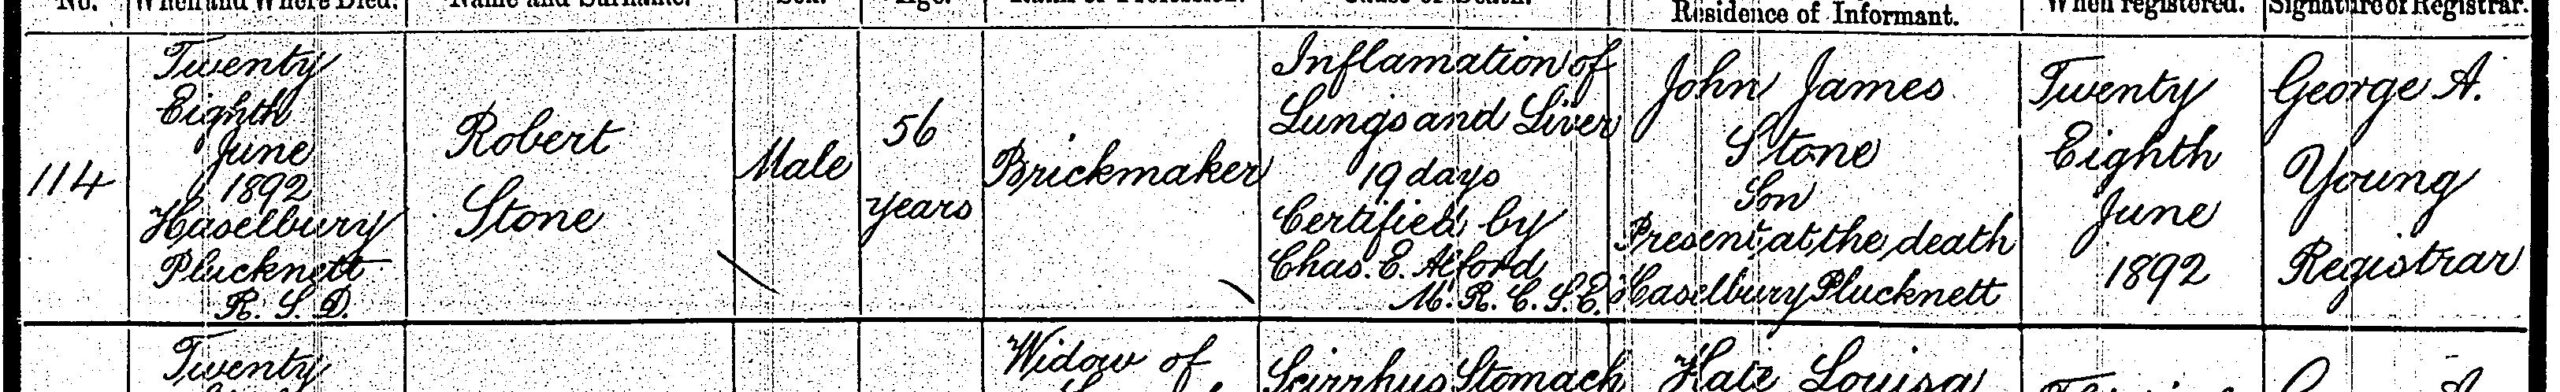 No. When and Where Died. Name and Surname. Sex. Age. Cause of Death. Residence of Informant. When registered. Signature of Registrar.
114
Twenty
Eighth
June
1892
Haselbury
Plucknett
R. S. D.
Robert
Stone
Male
56
years
Brickmaker
Inflamation of
Lungs and Liver
19 days
Certified by
Chas. E. Alford
M. R. C. S. E.
John James
Stone
Son
Present at the death
Haselbury Plucknett
Twenty
Eighth
June
1892
George A.
Young
Registrar
Twenty
Widow of
Scirrhus Stomach
Kate Louisa